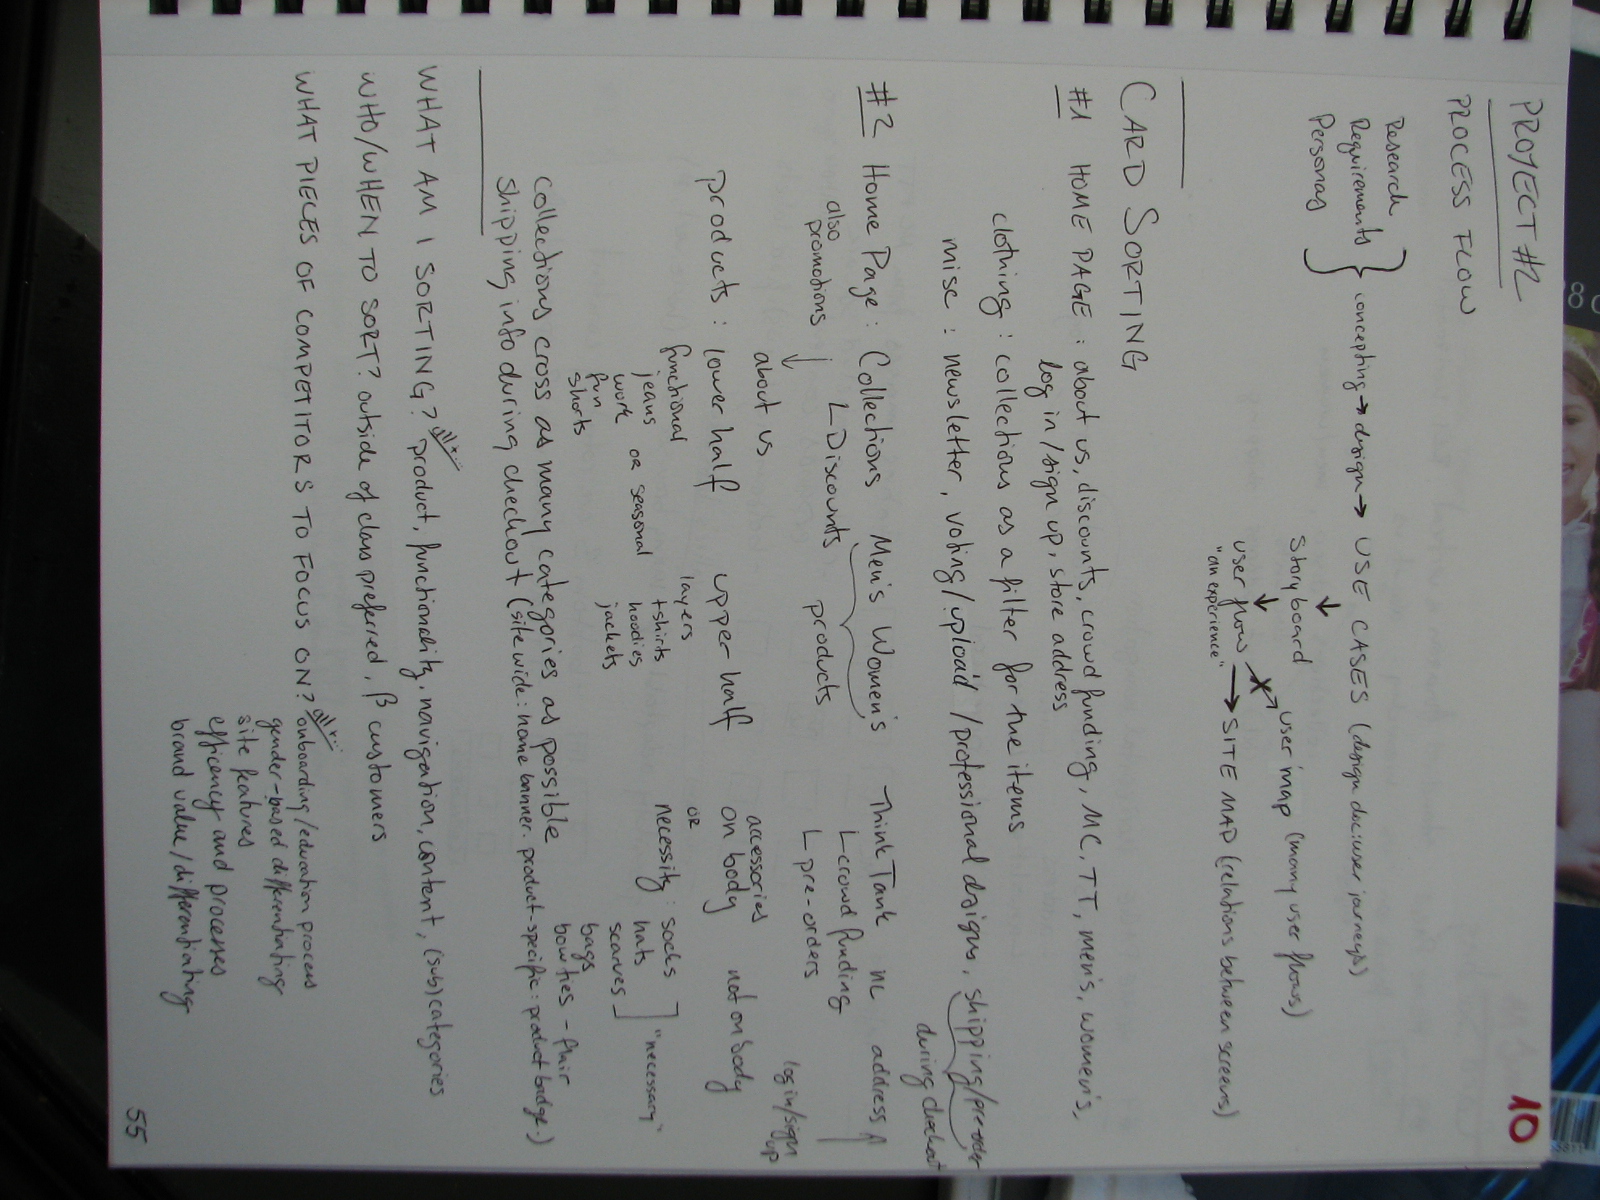 PROJECT #2
10
PROCESS FLOW
Research
Requirements
Personas
concepting → design → USE CASES (design doc: user journeys)
Storyboard
user map (many user flows)
X
user flow
→ SITE MAP (relations between screens)
"an experience"
CARD SORTING
#1 HOME PAGE : about us, discounts, crowd funding, MC, TT, men's, women's,
log in / sign up, store address
clothing : collections as a filter for the items
misc : newsletter, voting/upload /professional designs, shipping/pre-order
during checkout
#2 Home Page : Collections Men's Women's Think Tank NL address
also promotions
Discounts
products
crowd funding
pre-orders
log in/sign up
about us
accessories
products : lower half upper half on body not on body
functional layers OR
jeans tshirts necessity : socks "necessary"
work OR seasonal hoodies hats
fun jackets scarves
shorts bags
bowties - flair
collections cross as many categories as possible
shipping info during checkout (site wide: home banner. product-specific: product badge.)
WHAT AM I SORTING? all +... product, functionality, navigation, content, (sub)categories
WHO/WHEN TO SORT? outside of class preferred, β customers
WHAT PIECES OF COMPETITORS TO FOCUS ON? all +... onboarding/education process
gender-based differentiating
site features
efficency and processes
brand value/differentiating
55